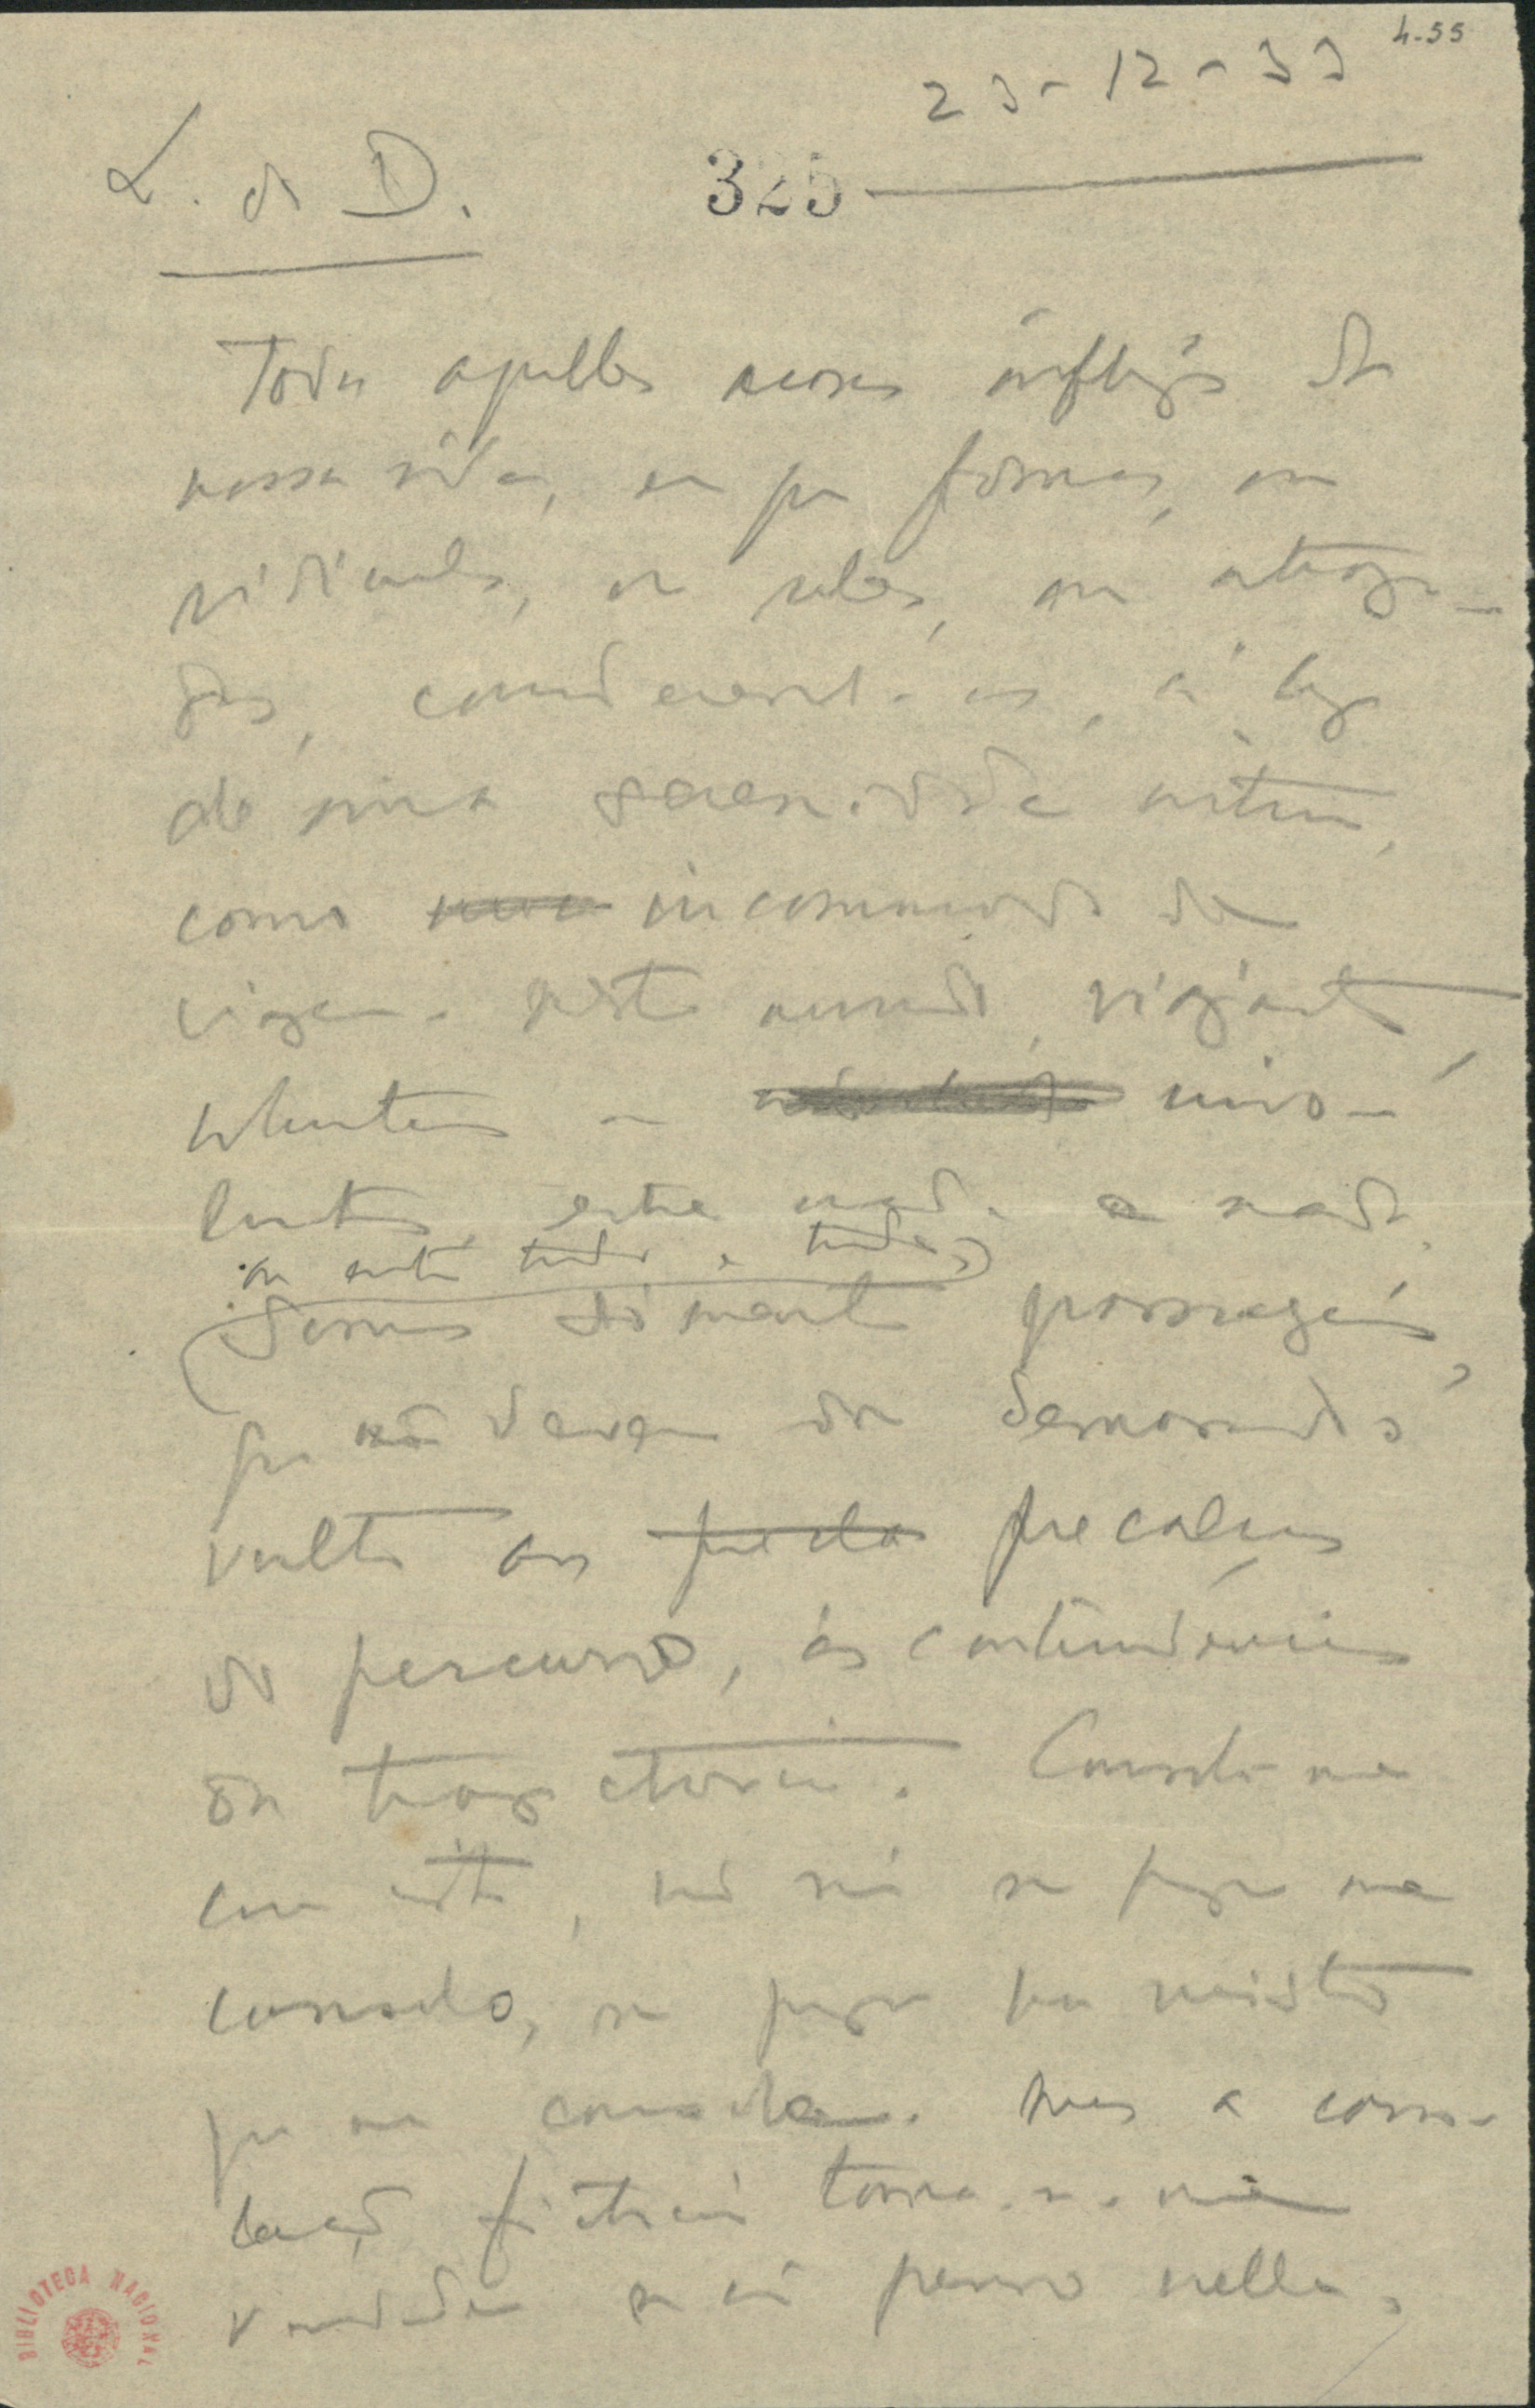 4-55
23-12-33
L. do D.
325
Todos aquelles acasos infelizes da
nossa vida, em que fomos, ou
ridiculos, ou reles, ou atraza-
dos, consideremol-os, á luz
de nossa serenidade intima,
como incommodos da
viagem. Neste mundo, viajantes,
volentes ou invo-
luntarios, entre nada e nada
ou entre tudo e tudo,
somos sómente passageiros,
que não devem dar demasiado
vulto aos percalços
do percurso, ás contundencias
da trajectoria. Consolo-me
com isto, não sei se porque me
consolo, se porque ha nisto
que me console. Mas a conso-
lação ficticia torna-se-me
verdade se não penso nella.
BIBLIOTECA NACIONAL